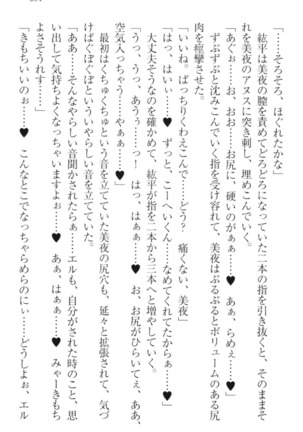 「……そろそろ、ほぐれたかな」
紘平は美夜の膣を責めてどろどろになっていた二本の指を引き抜くと、そのままそ
れを美夜のアヌスに突き刺し、埋めこんでいく。
「あぐぉ……お、おお……お尻に、硬いのがぁ……♥ あぁ、らめぇ……♥」
ずぶずぶと沈みこんでいく指を受け容れて、美夜はぷるぷるとボリュームのある尻
肉を痙攣させた。
「いいね。ばっちりくわえこんで……どう? 痛くない、美夜」
「はっ、はぃ……♥ ずっと、こーへいくん……なめてくれてたからぁ……♥」
大丈夫そうなのを確かめて、紘平が指を二本から三本へと増やしていく。
「うっ、うう、あぅ……っ! はっ、はぁ……♥ お、お尻がひらいてぇ、ああ、
空気入っちゃう……やぁぁ……♥」
最初はくちゅくちゅという音を立てていた美夜の尻穴も、延々と拡張されて、気づ
けばぐぽぐぽといういやらしい音を立てていた。
「ああ……そんなやらしい音聞かされたらぁ……エルも、自分がされた時のこと、思
い出して気持ちよくなっちゃいますよぉ……♥ あぁ、はぁぁ……♥ みゃーきもち
よさそうれす……」
「きもちいいのぉ……♥ こんなとこでなっちゃらめらのにぃ……どうしよぉ、エル